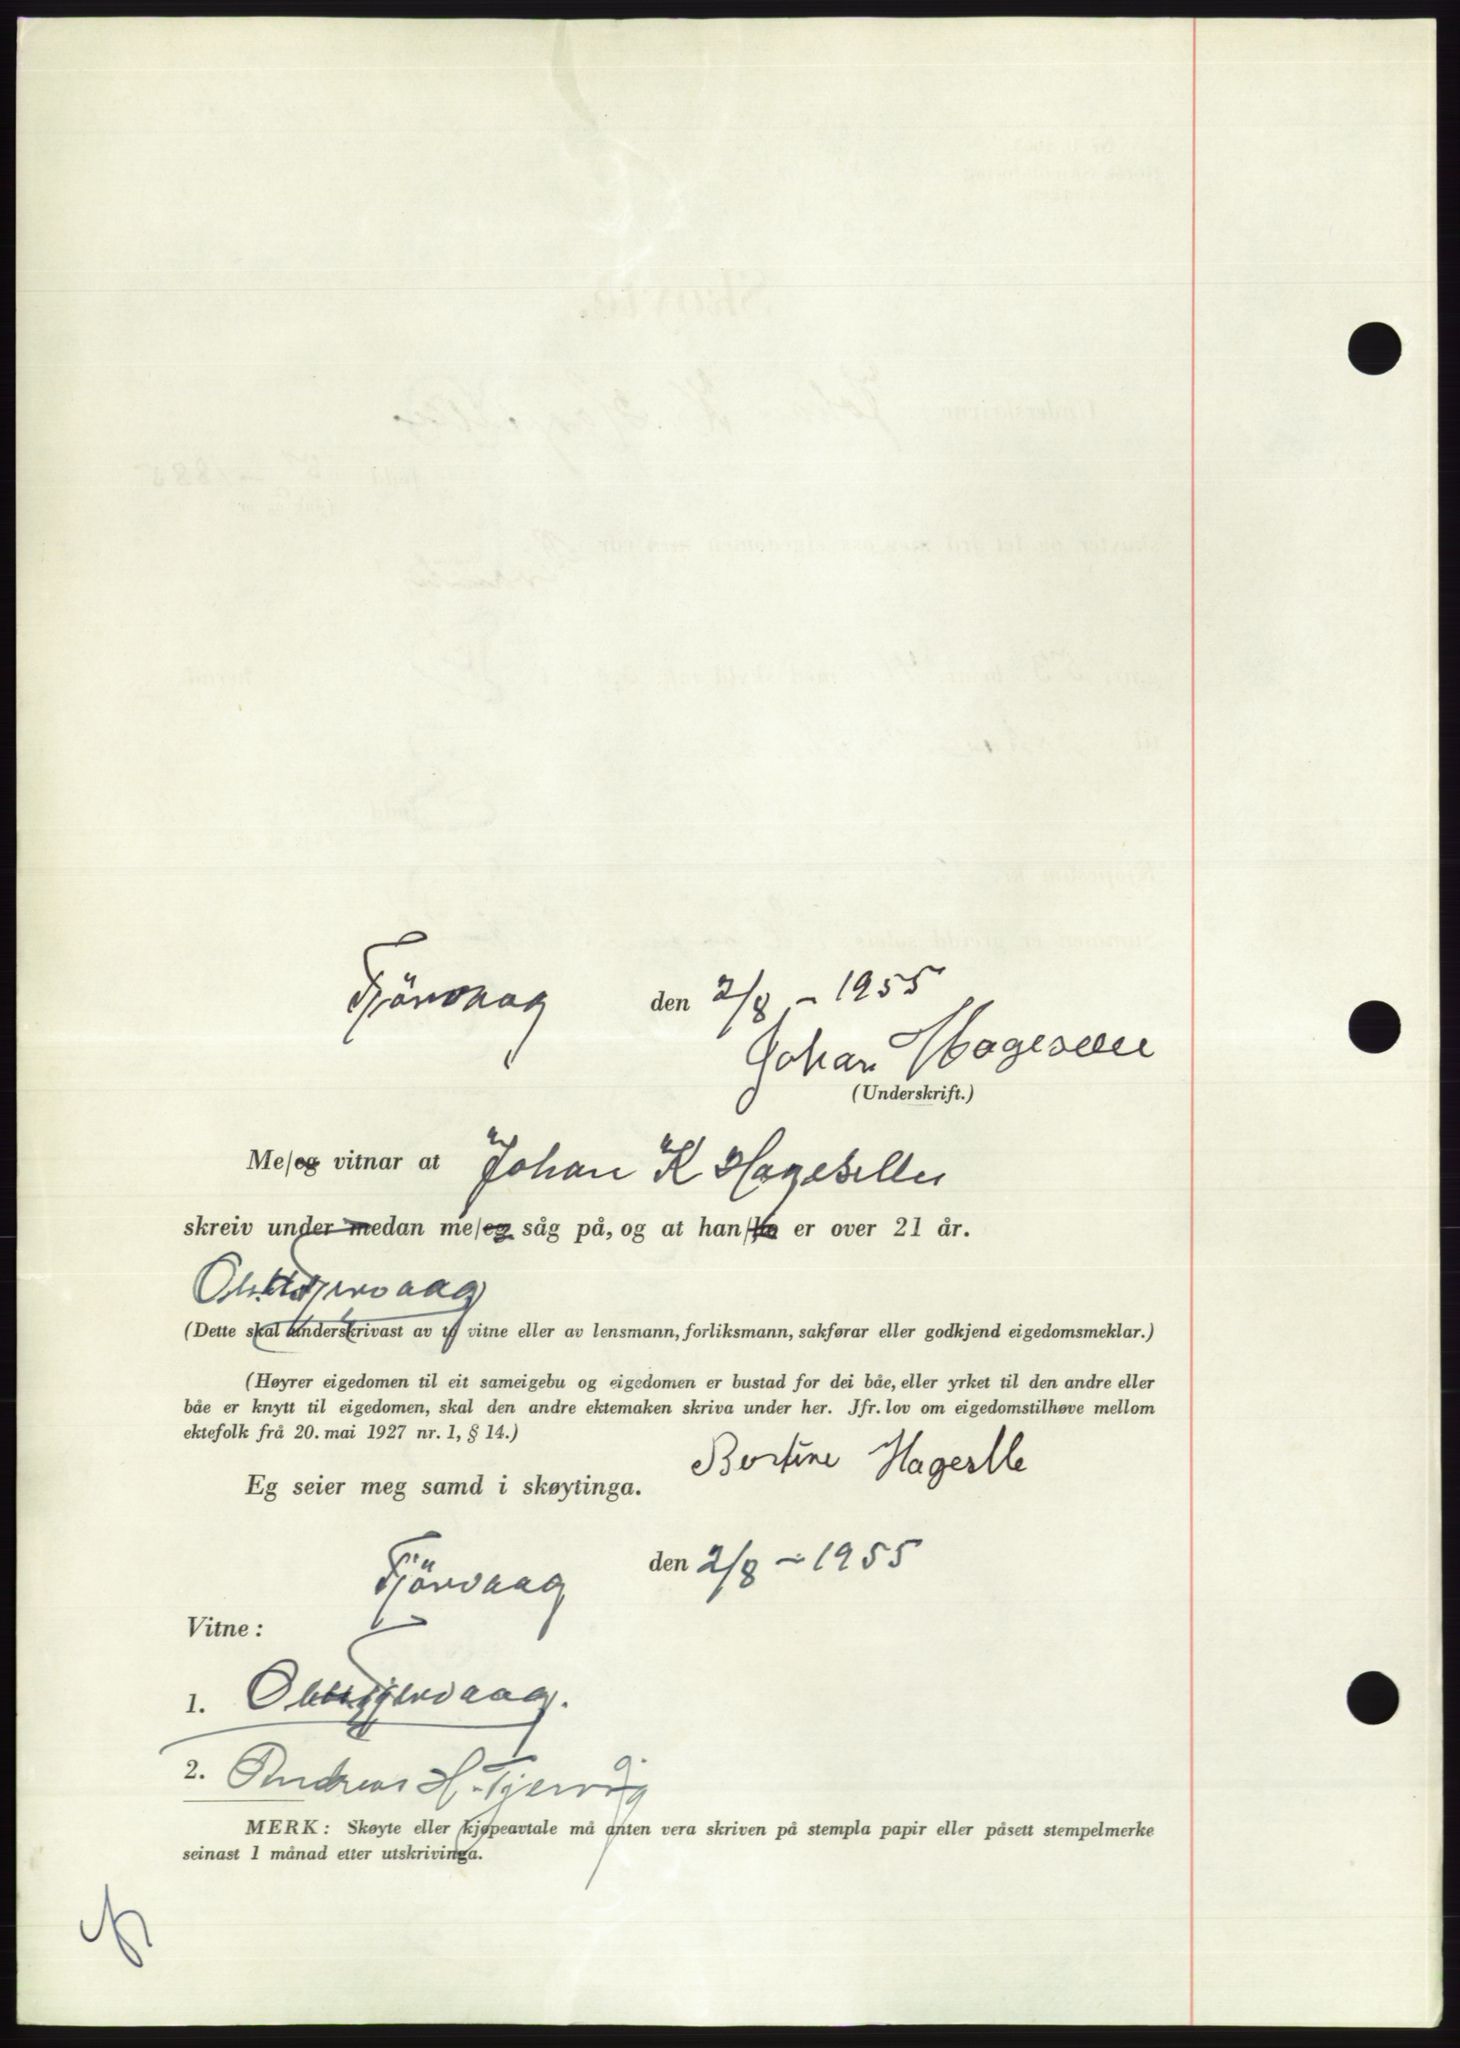 Tjörvaag den 2/8 - 1955
Johan Hageselle
(Underskrift.)
Me/eg vitnar at Johan K Hageselle
skreiv under medan me/eg såg på, og at han/ho er over 21 år.
Tjervaag
(Dette skal underskrivast av to vitne eller av lensmann, forliksmann, sakførar eller godkjend eigedomsmeklar.)
(Høyrer eigedomen til eit sameigebu og eigedomen er bustad for dei båe, eller yrket til den andre eller
båe er knytt til eigedomen, skal den andre ektemaken skriva under her. Jfr. lov om eigedomstilhøve mellom
ektefolk frå 20. mai 1927 nr. 1, § 14.)
Bertine Hageslle
Eg seier meg samd i skøytinga.
Tjörvaag den 2/8 - 1955
Vitne:
1. Tjervaag.
2. Andreas H. Tjervåg
MERK: Skøyte eller kjøpeavtale må anten vera skriven på stempla papir eller påsett stempelmerke
seinast 1 månad etter utskrivinga.